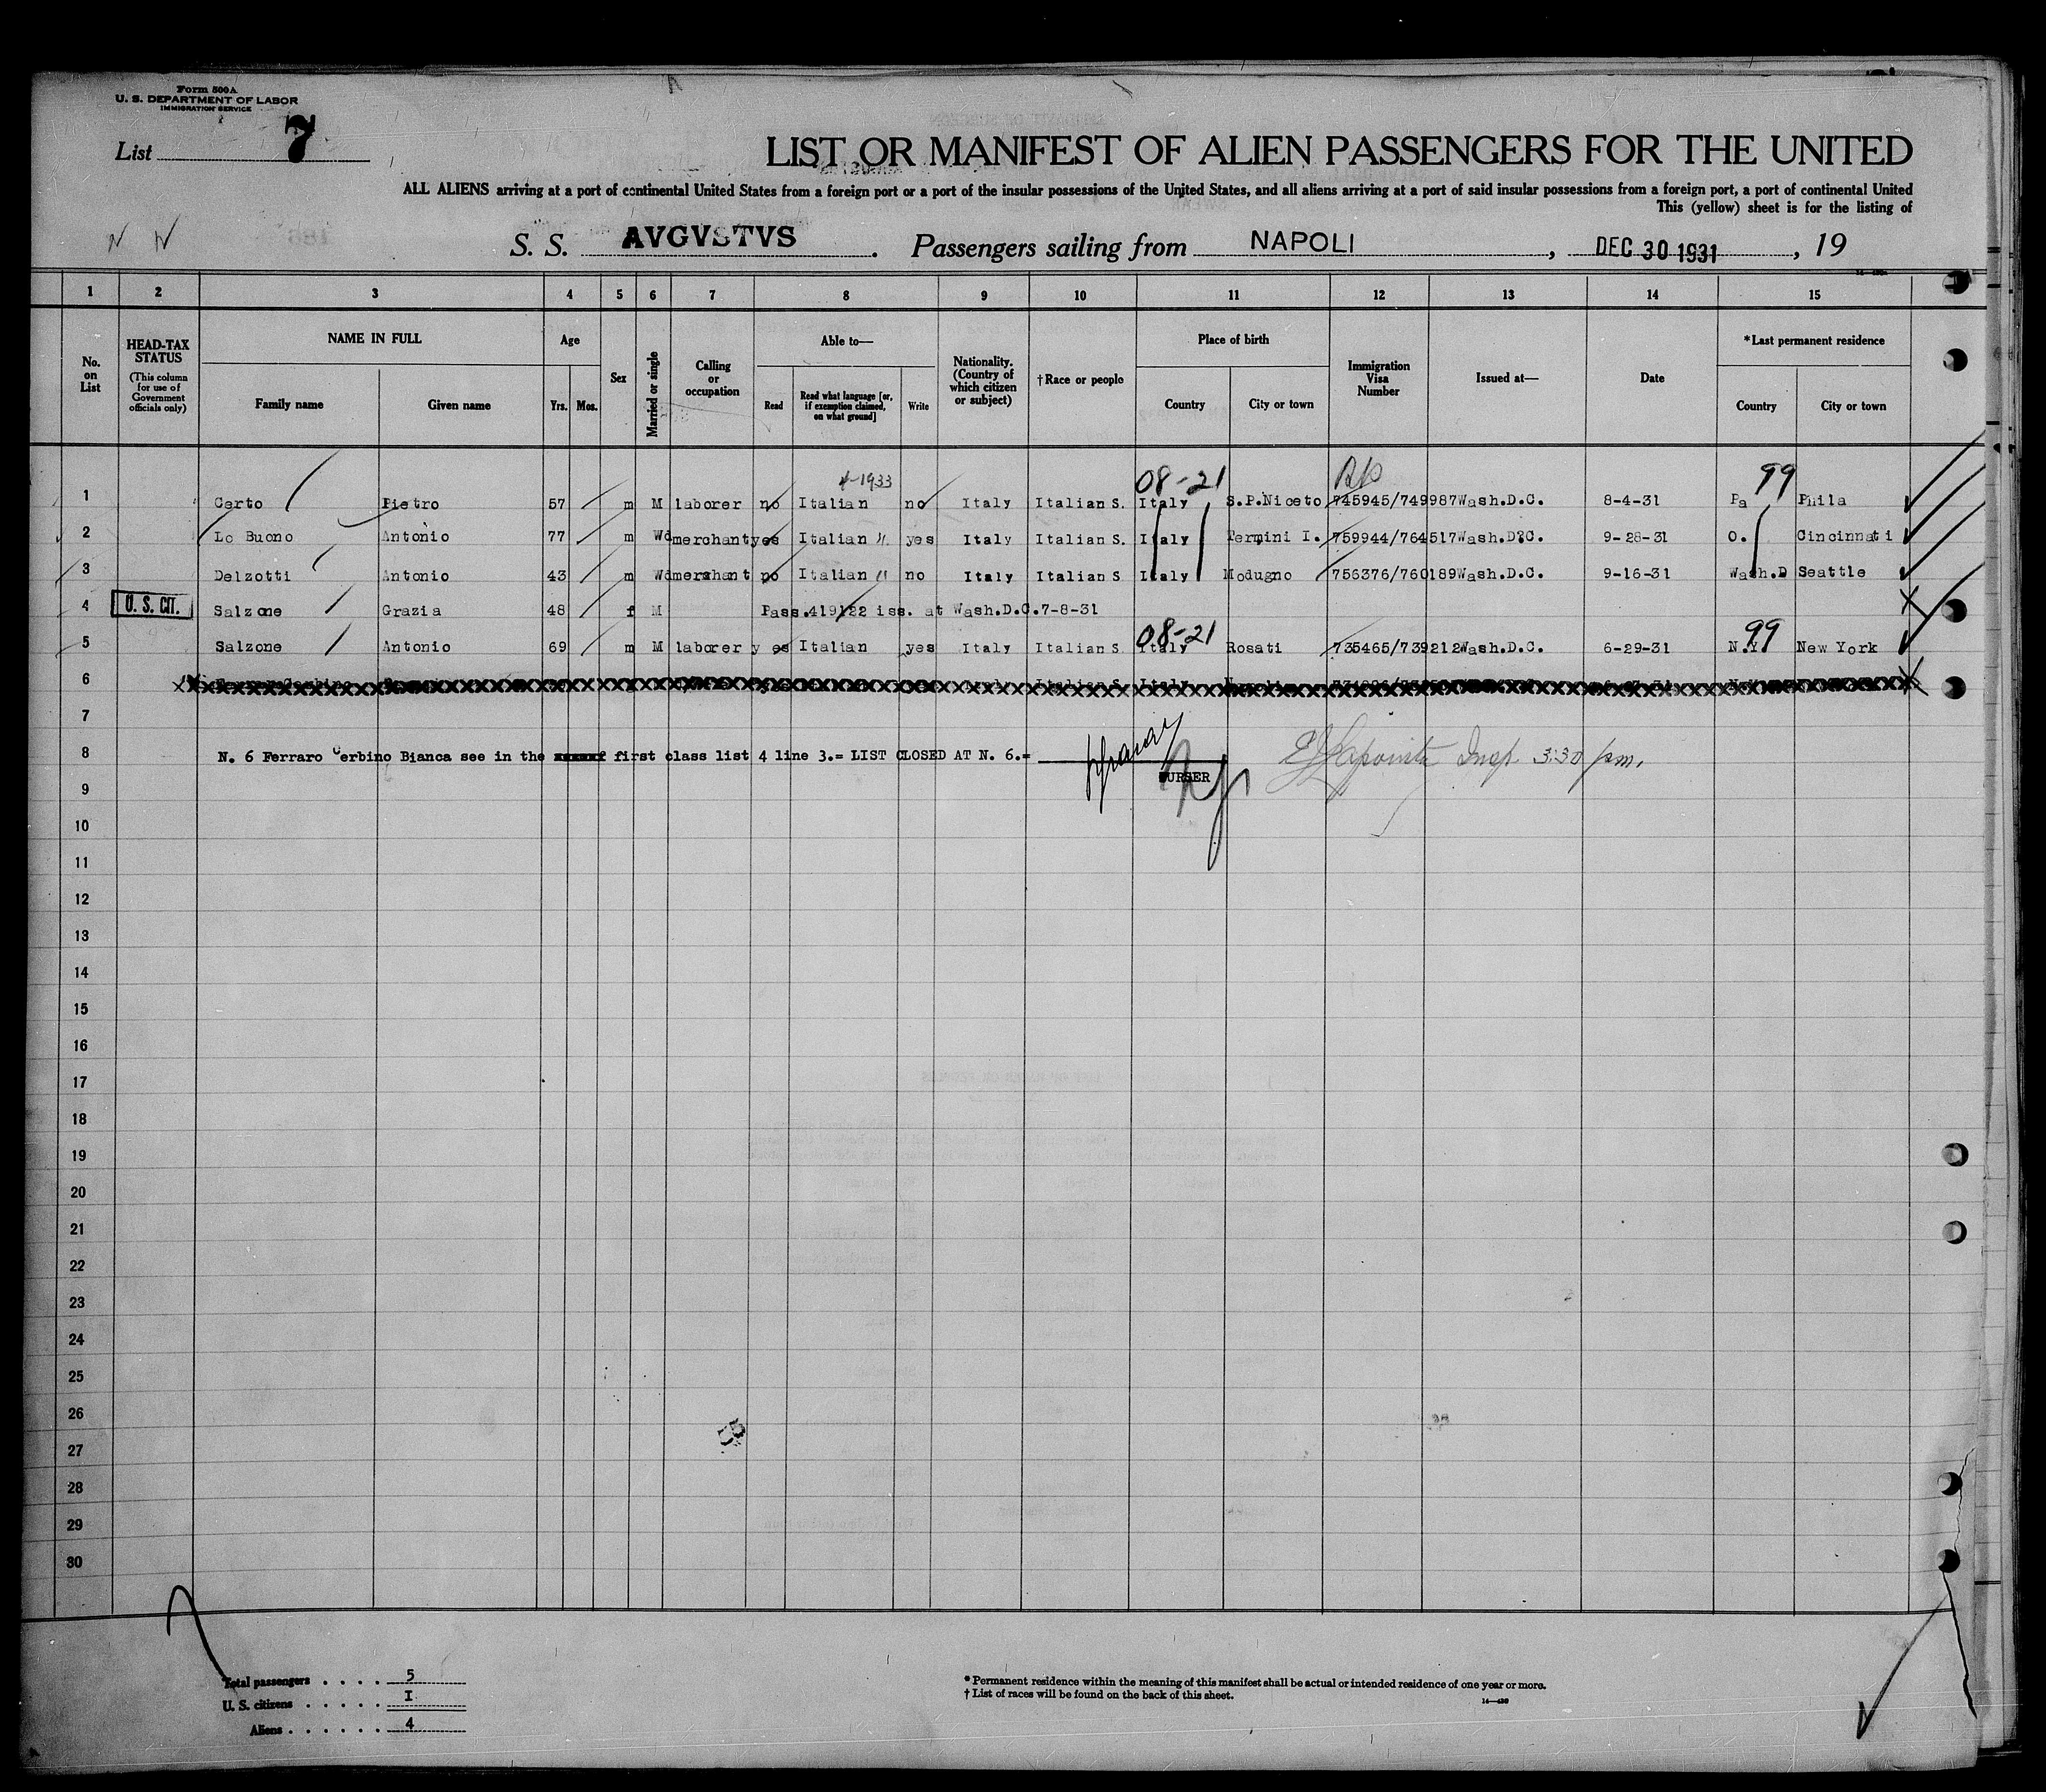 Form 500A
U. S. DEPARTMENT OF LABOR
IMMIGRATION SERVICE
List 7
LIST OR MANIFEST OF ALIEN PASSENGERS FOR THE UNITED
ALL ALIENS arriving at a port of continental United States from a foreign port or a port of the insular possessions of the United States, and all aliens arriving at a port of said insular possessions from a foreign port, a port of continental United
This (yellow) sheet is for the listing of
S. S. AVGVSTVS. Passengers sailing from NAPOLI, DEC 30 1931, 19
1 2 3 4 5 6 7 8 9 10 11 12 13 14 15
No. on List
HEAD-TAX STATUS (This column for use of Government officials only)
NAME IN FULL
Family name Given name
Age
Yrs. Mos.
Sex
Married or single
Calling or occupation
Able to—
Read Read what language [or, if exemption claimed, on what ground] Write
Nationality. (Country of which citizen or subject)
†Race or people
Place of birth
Country City or town
Immigration Visa Number
Issued at—
Date
*Last permanent residence
Country City or town
1933
08-21 99
1 Certo Pietro 57 m M laborer no Italian no Italy Italian S. Italy S.P.Niceto 745945/749987 Wash.D.C. 8-4-31 Pa Phila
2 Lo Buono Antonio 77 m Wd merchant yes Italian " yes Italy Italian S. Italy Termini I. 759944/764517 Wash.D.C. 9-28-31 O. Cincinnati
3 Delzotti Antonio 43 m Wd merchant no Italian " no Italy Italian S Italy Modugno 756376/760189 Wash.D.C. 9-16-31 Wash.D Seattle
4 U. S. CIT. Salzone Grazia 48 f M Pass.419122 iss. at Wash.D.C.7-8-31
08-21 99
5 Salzone Antonio 69 m M laborer yes Italian yes Italy Italian S Italy Rosati 735465/739212 Wash.D.C. 6-29-31 N.Y. New York
6
7
8 N. 6 Ferraro Cerbino Bianca see in the first class list 4 line 3.= LIST CLOSED AT N. 6.=
PURSER
Insp 3:30 pm.
9
10
11
12
13
14
15
16
17
18
19
20
21
22
23
24
25
26
27
28
29
30
Total passengers . . . . 5
U. S. citizens . . . . . I
Aliens . . . . . . 4
*Permanent residence within the meaning of this manifest shall be actual or intended residence of one year or more.
†List of races will be found on the back of this sheet.